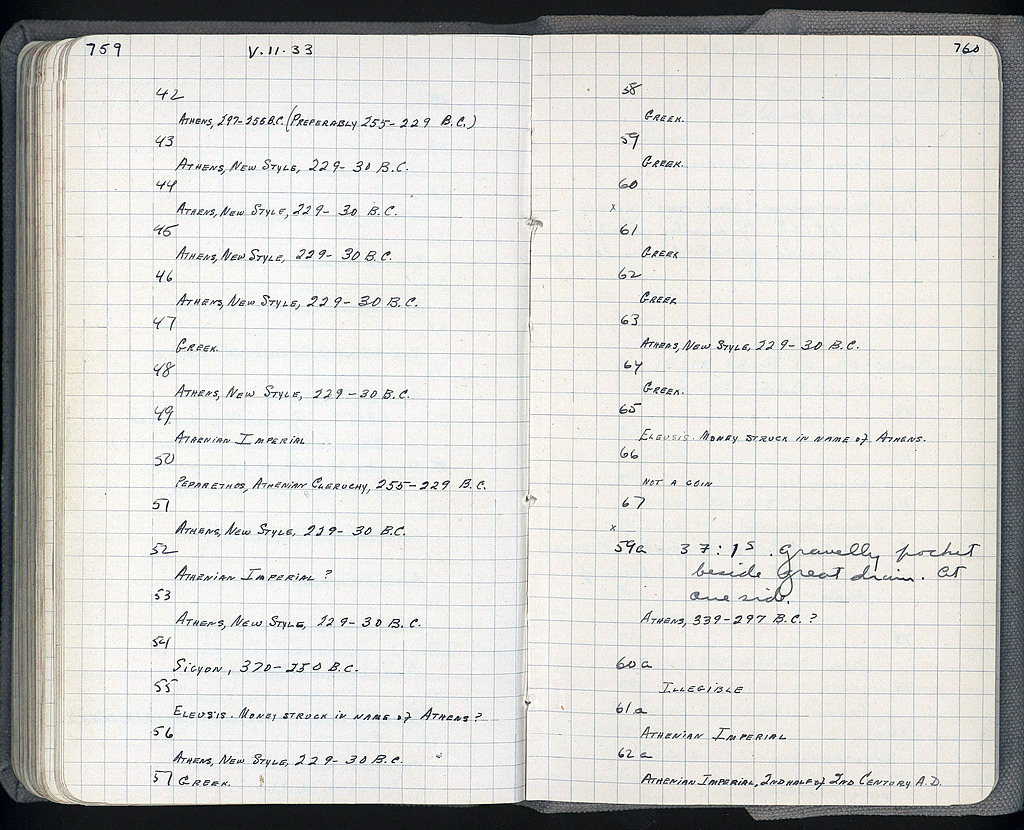 759
V.11.33
42
ATHENS, 297-256 B.C. (PREFERABLY 255-229 B.C.)
43
ATHENS, NEW STYLE, 229-30 B.C.
44
ATHENS, NEW STYLE, 229-30 B.C.
45
ATHENS, NEW STYLE, 229-30 B.C.
46
ATHENS, NEW STYLE, 229-30 B.C.
47
GREEK.
48
ATHENS, NEW STYLE, 229-30 B.C.
49
ATHENIAN IMPERIAL
50
PEPARETHOS, ATHENIAN CLERUCHY, 255-229 B.C.
51
ATHENS, NEW STYLE, 229-30 B.C.
52
ATHENIAN IMPERIAL ?
53
ATHENS, NEW STYLE, 229-30 B.C.
54
SICYON, 370-250 B.C.
55
ELEUSIS. MONEY STRUCK IN NAME OF ATHENS ?
56
ATHENS, NEW STYLE, 229-30 B.C.
57 GREEK.
760
58
GREEK.
59
GREEK.
60
x
61
GREEK
62
GREEK
63
ATHENS, NEW STYLE, 229-30 B.C.
64
GREEK.
65
ELEUSIS. MONEY STRUCK IN NAME OF ATHENS.
66
NOT A COIN
67
x
59a 37:15. gravelly pocket
beside great drain. at
one side.
ATHENS, 339-297 B.C. ?
60a
ILLEGIBLE
61a
ATHENIAN IMPERIAL
62a
ATHENIAN IMPERIAL, 2ND HALF OF 2ND CENTURY A.D.